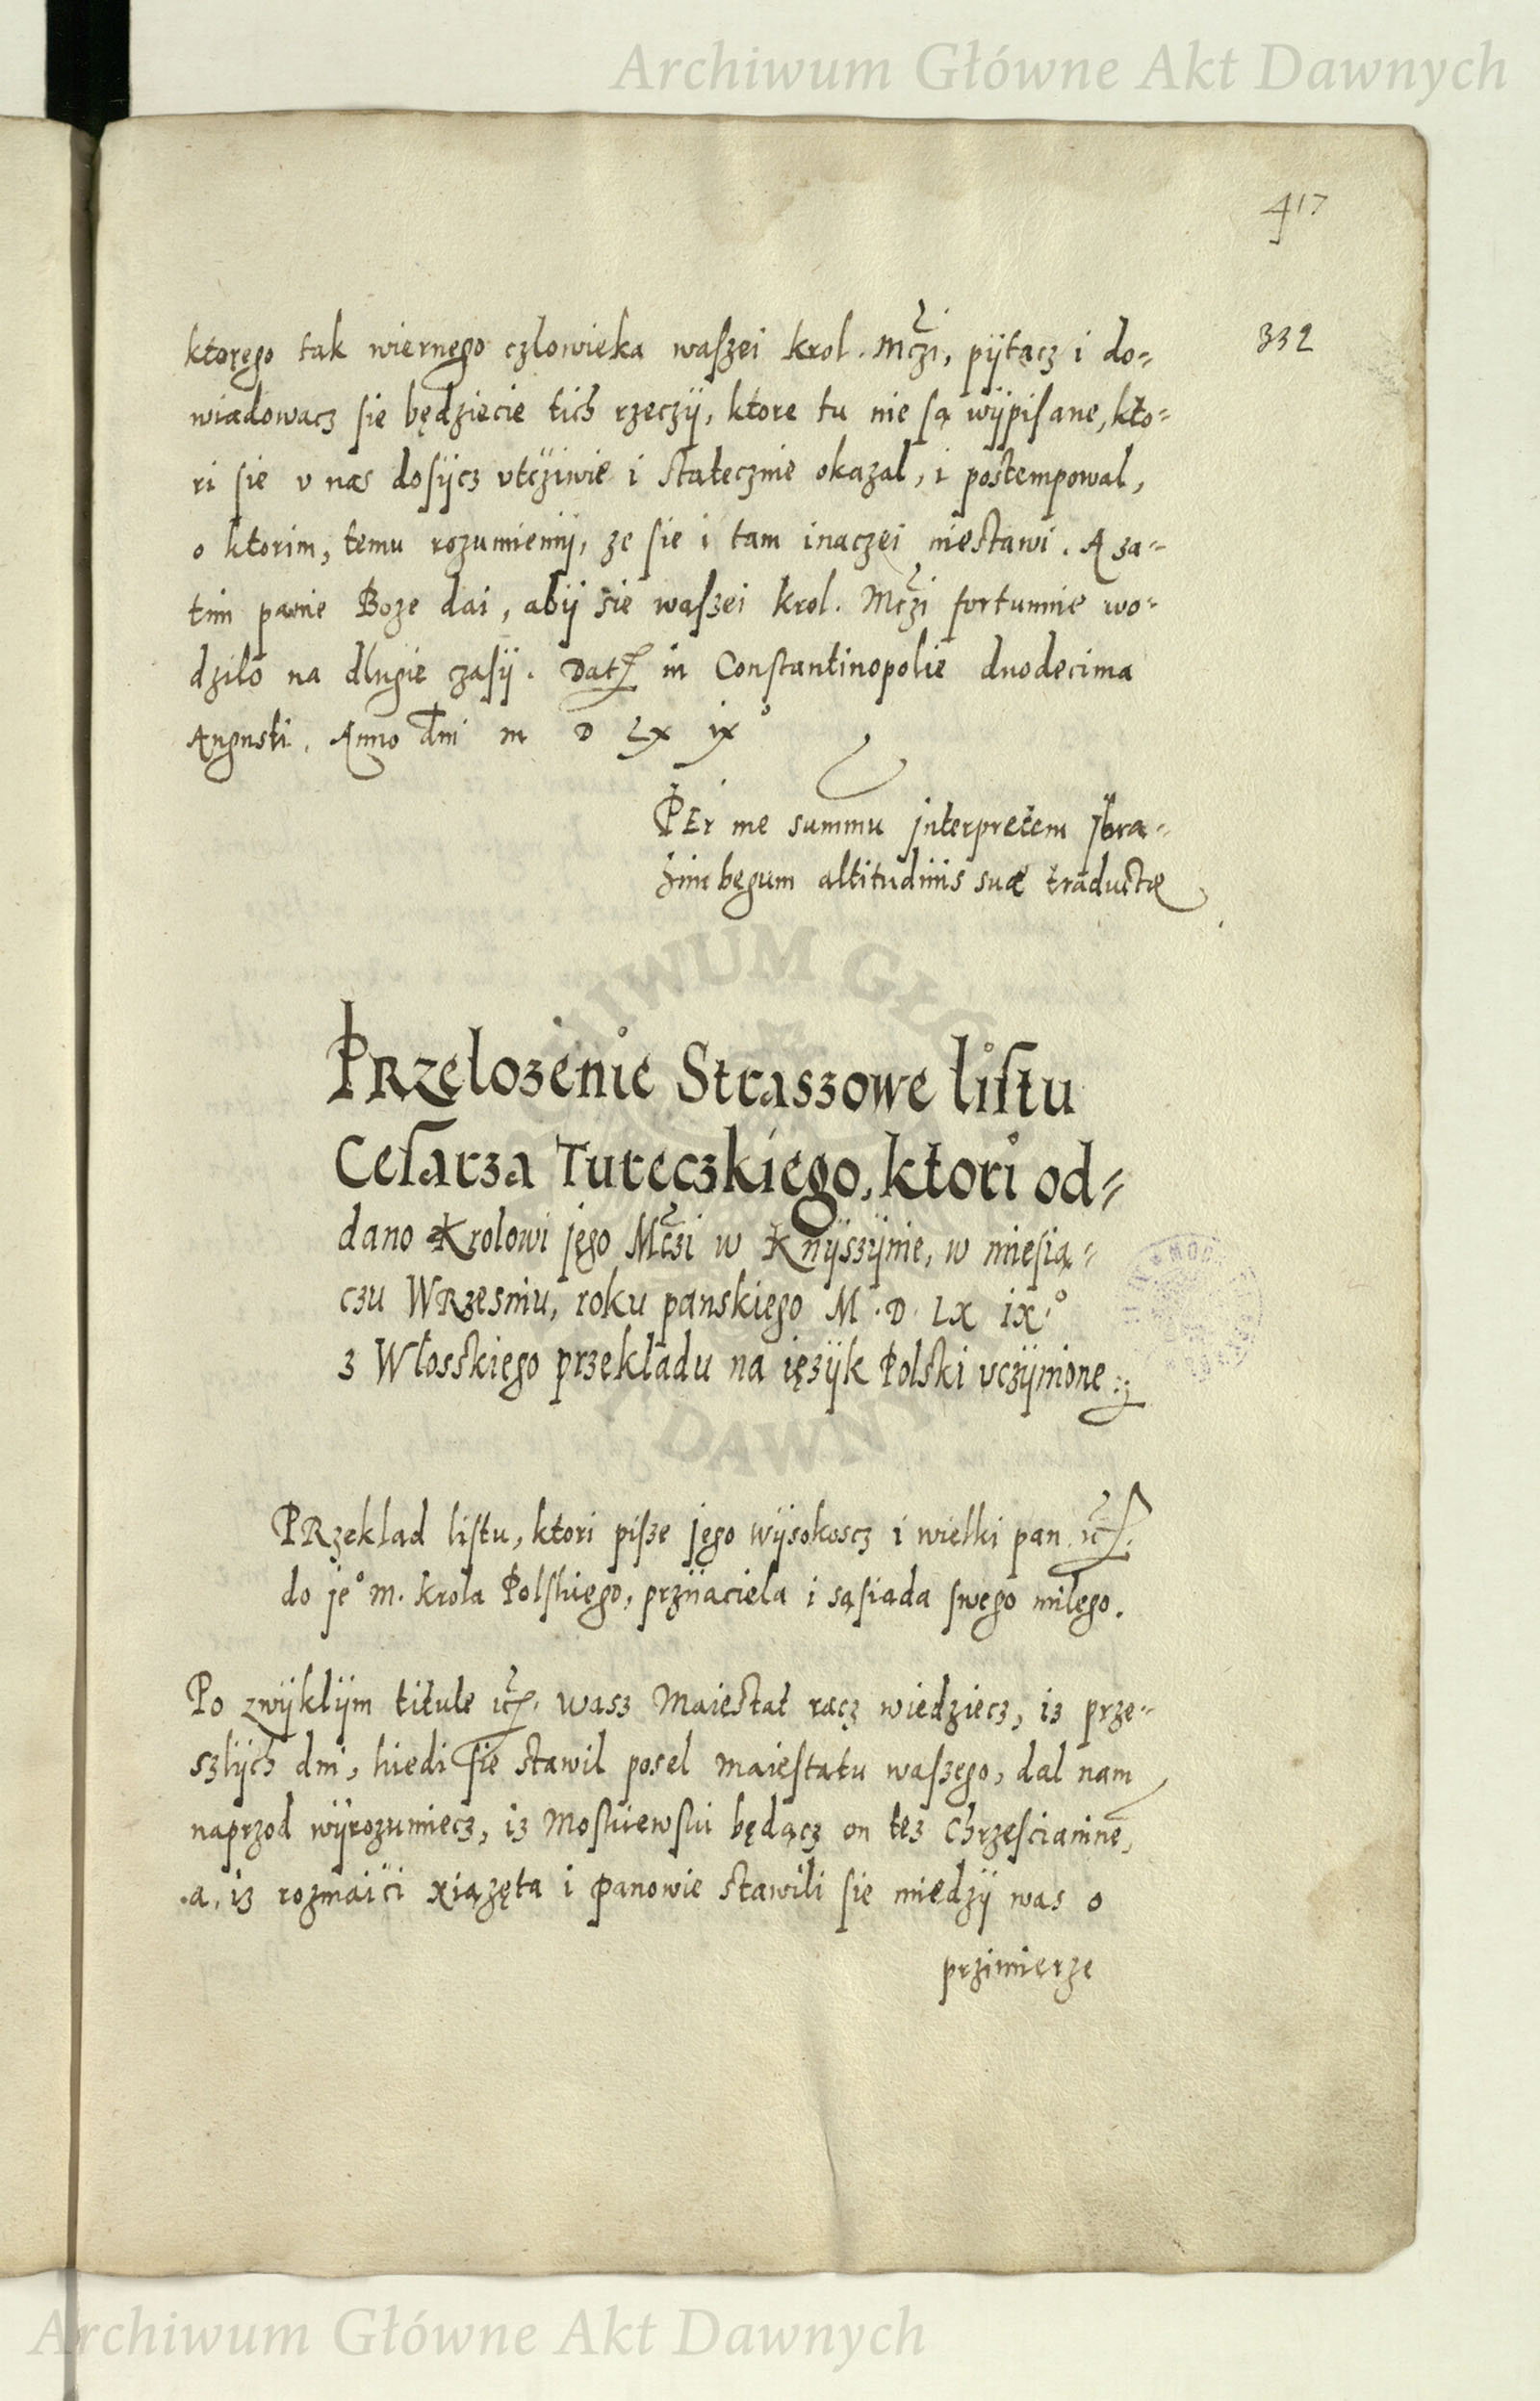 Archiwum Główne Akt Dawnych
417
332
ktorego tak wiernego czlowieka waszei krol. Mczi, pÿtacz i do=
wiadowacz sie będziecie tich rzeczÿ, ktore tu nie są wÿpisane, kto=
ri sie v nas dosÿcz vtcziwie i statecznie okazal, i postempowal,
o ktorim, temu rozumiemÿ, ze sie i tam inaczei niestawi. A za=
tim panie Boze dai, abÿ sie waszei krol. Mczi fortunnie wo=
dzilo na dlugie czasÿ. Dat in Constantinopolie duodecima
Augusti. Anno dni m D LX ix°
PEr me summu jnterpretem Jbra=
himbegum altitudinis suæ traductæ
PRzelozenie Straszowe listu
Cesarza Tureczkiego, ktori od=
dano Krolowi jego Mczi w Knÿszÿnie, w miesią=
czu WRzesniu, roku panskiego M.D.LX IX.°
z Włosskiego przekładu na ięzÿk Polski vczÿnione
PRzeklad listu, ktori pisze jego wÿsokoscz i wielki pan itc.
do je° m. krola Polskiego, przÿaciela i sąsiada swego milego.
Po zwÿklÿm titule itc. wasz Maiestat racz wiedziecz, iz prze=
szlÿch dni, kiedi sie stawil posel maiestatu waszego, dal nam
naprzod wÿrozumiecz, iz Moskiewski będącz on tez Chrzescianinē,
a, iz rozmaici xiązęta i panowie stawili sie miedzÿ was o
przimierze
ARCHIWUM GŁÓWNE AKT DAWNYCH
Archiwum Główne Akt Dawnych